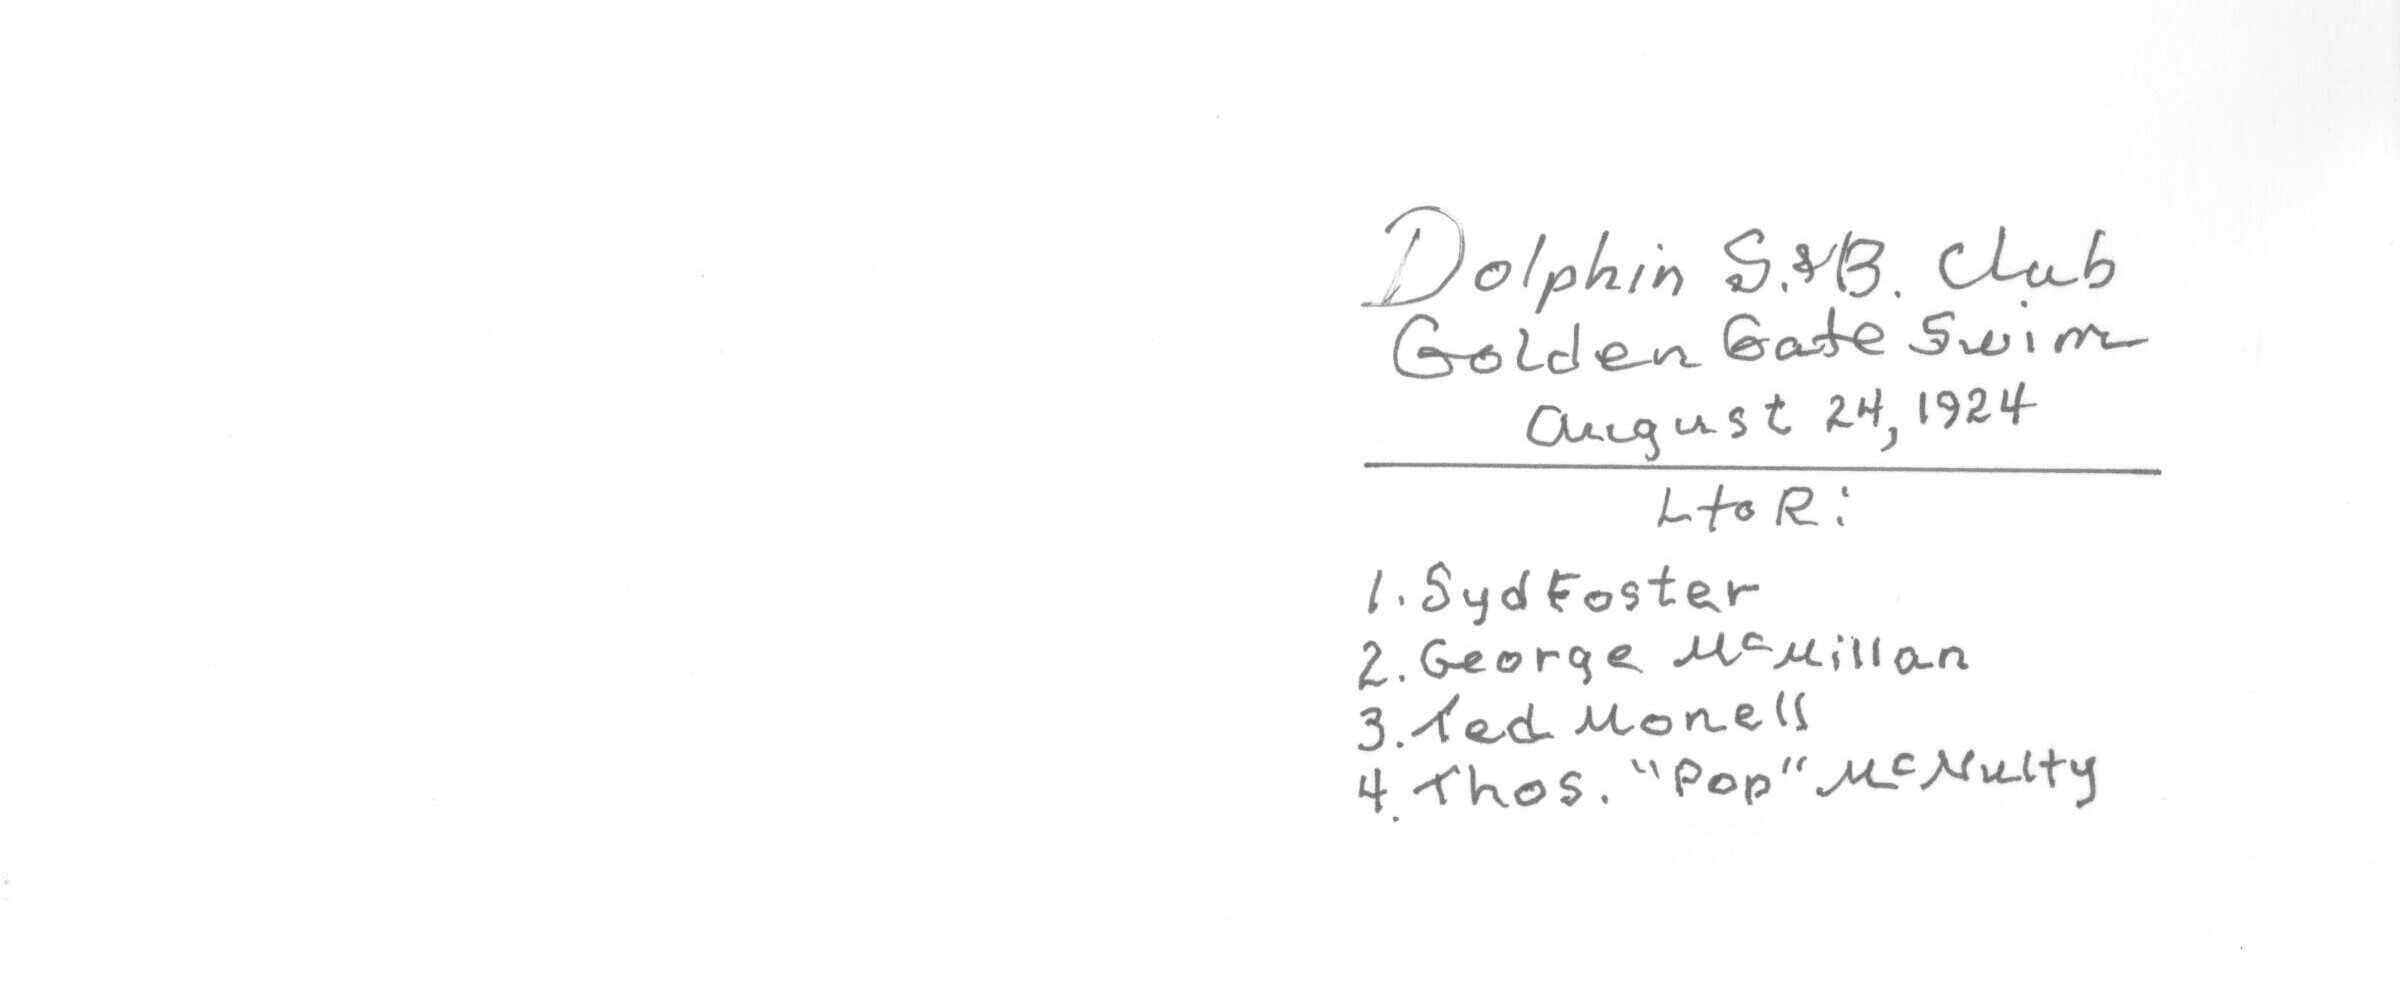 Dolphin S.&B. Club
Golden Gate Swim
August 24, 1924
L to R:
1. Syd Foster
2. George McMillan
3. Ted Monell
4. Thos. "Pop" McNulty